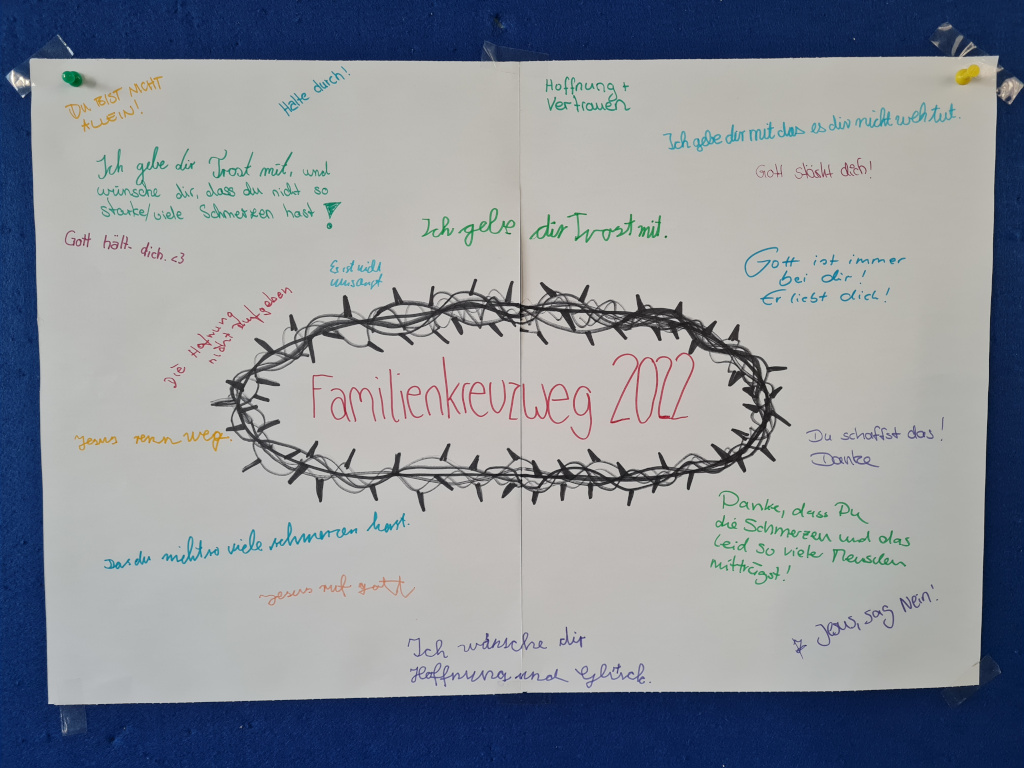 DU BIST NICHT
ALLEIN!
Halte durch!
Hoffnung +
Vertrauen
Ich gebe dir mit das es dir nicht weh tut.
Gott stäkt dich!
Ich gebe dir Trost mit, und
wünsche dir, dass du nicht so
starke/viele Schmerzen hast!
Ich gebe dir Trost mit.
Gott hält dich. <3
Es ist nicht
umsonst
Gott ist immer
bei dir!
Er liebt dich!
Die Hofnung
nicht Aufgeben
Familienkreuzweg 2022
Jesus renn weg.
Du schaffst das!
Danke
Danke, dass Du
die Schmerzen und das
Leid so vieler Menschen
mitträgst!
Das du nicht so viele schmerzen hast.
Jesus ruf gott
Jesus, sag Nein!
Ich wünsche dir
Hoffnung und Glück.